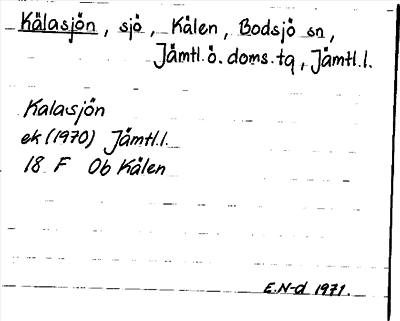 Kälasjön, sjö, Kälen, Bodsjö sn,
Jämtl.ö. doms.tg, Jämtl.l.
Kalasjön
ek (1970) Jämtl.l.
18 F Ob Kälen
E.N-d 1971.